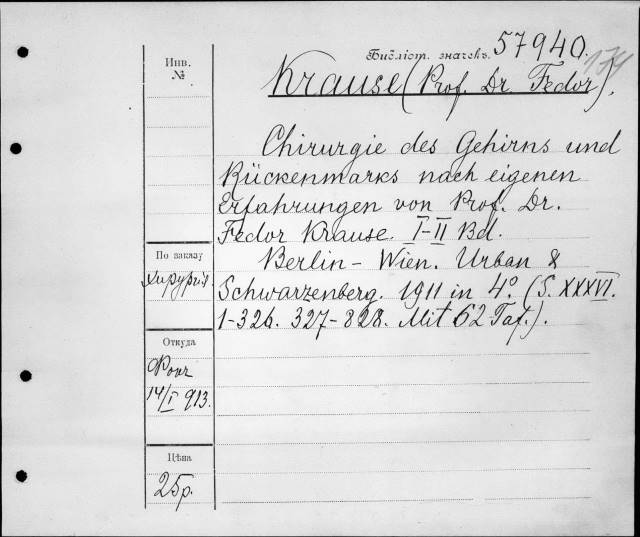 Библіот. значекъ. 57940.
174
Инв.
№
Krause (Prof. Dr. Fedor).
Chirurgie des Gehirns und
Rückenmarks nach eigenen
Erfahrungen von Prof. Dr.
Fedor Krause. I-II Bd.
Berlin - Wien. Urban &
Schwarzenberg. 1911 in 4°. (S. XXXVI.
1-326. 327-828. Mit 62 Taf.).
По заказу
Хирургія
Откуда
14/I 913.
Цѣна
25р.